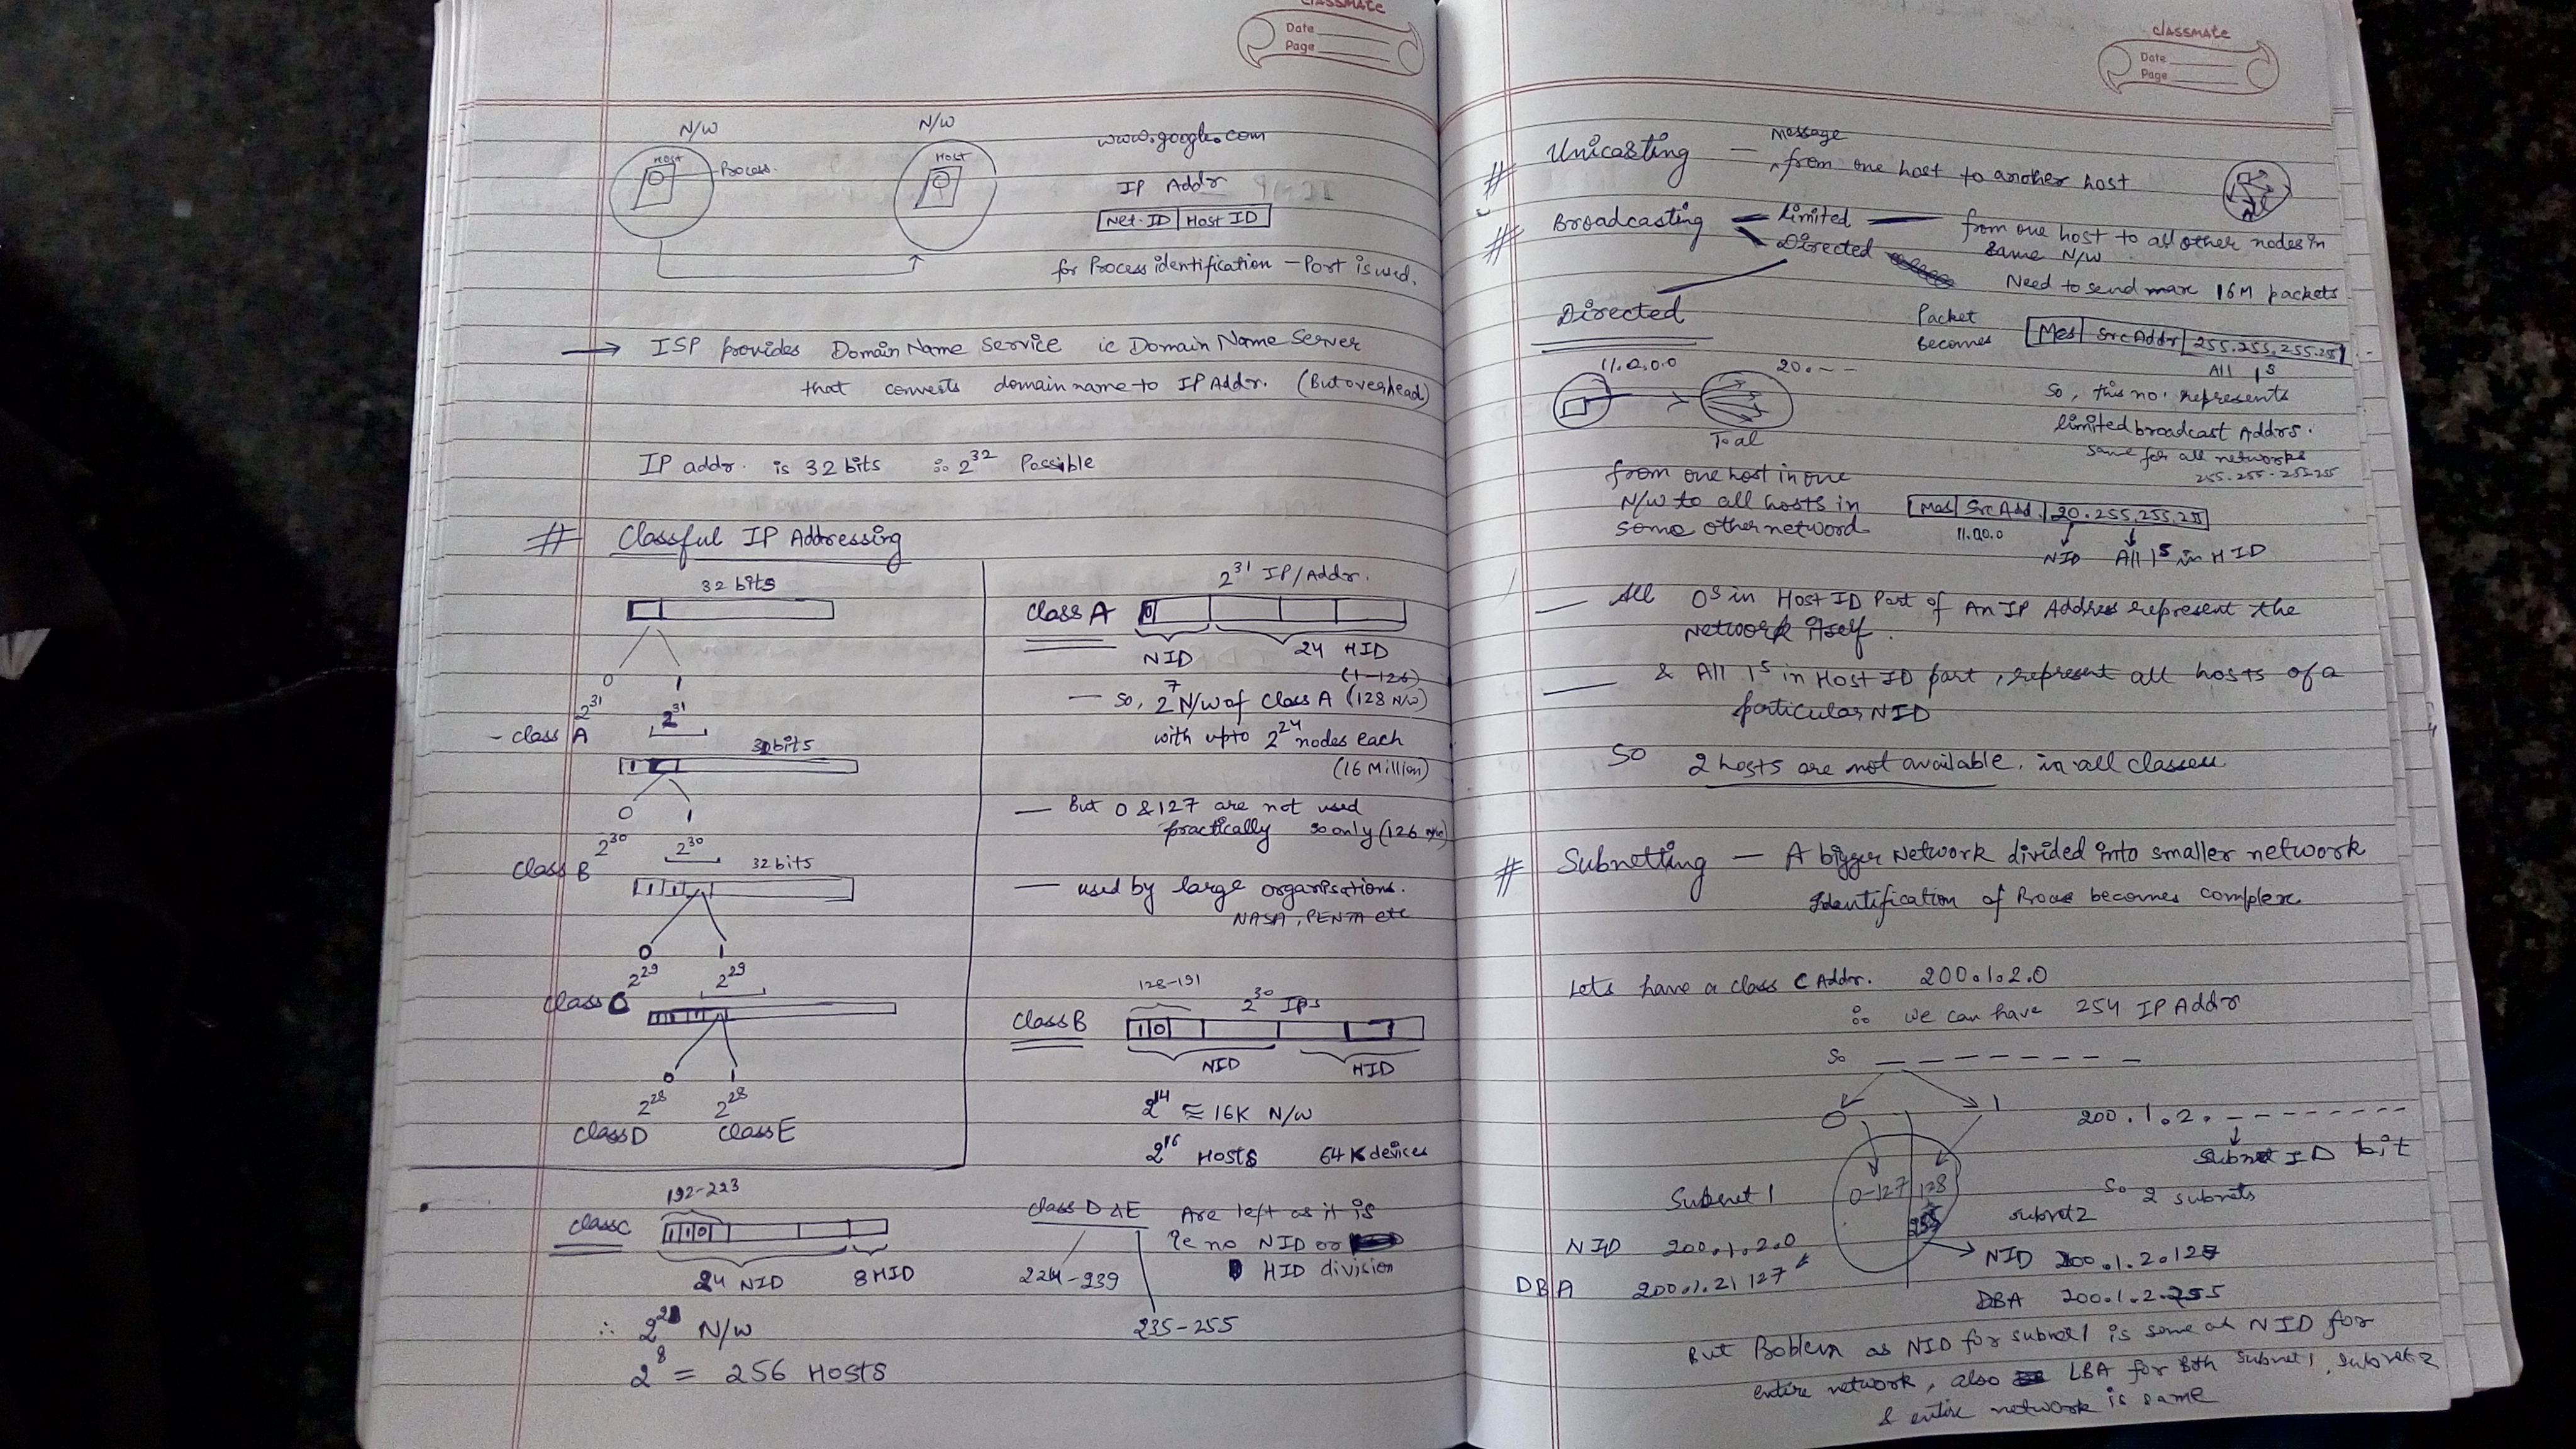 classmate
Date
Page
N/W
N/W
Host
Process.
Host
www.google.com
IP Addr
Net.ID | Host ID
for Process identification - Port is used.
→ ISP provides Domain Name Service ie Domain Name Server
that converts domain name to IP Addr. (But overhead)
IP addr. is 32 bits ∴ 2^32 Possible
# Classful IP Addressing
32 bits
0 1
2^31 2^31
- class A
32bits
0 1
2^30 2^30
class B
32 bits
0 1
2^29 2^29
class C
0 1
2^28 2^28
class D class E
2^31 IP/Addr.
class A 0
NID 24 HID
(1-126)
- So, 2^7 N/w of class A (128 N/w)
with upto 2^24 nodes each
(16 Million)
- But 0 & 127 are not used
practically so only (126 N/w)
- used by large organisations.
NASA, PENTA etc
128-191
2^30 IPs
class B 1 0
NID HID
2^14 ≈ 16K N/W
2^16 Hosts 64K devices
192-223
class C 1 1 0
24 NID 8 HID
∴ N/W
2^8 = 256 HOSTS
class D & E Are left as it is
ie no NID or
HID division
224-239
235-255
classmate
Date
Page
# Unicasting - message from one host to another host
All
# Broadcasting - Limited - from one host to all other nodes in
same N/W
Directed
Need to send max 16M packets
Directed
Packet becomes Mes | Src Addr | 255.255.255.25
All 1s
11.0.0.0 20. - -
To al
So, this no. represents
limited broadcast Addrs.
same for all networks
255.255.255.255
from one host in one
N/W to all hosts in
some other netword
Mes | Src Add. | 20.255.255.25
11.0.0.0
NID All 1s in HID
- All 0s in Host ID Part of An IP Address represent the
Network itself.
- & All 1s in Host ID part, represent all hosts of a
particular NID
So 2 hosts are not available. in all classes
# Subnetting - A bigger Network divided into smaller network
Identification of becomes complex
Lets have a class C Addr. 200.1.2.0
∴ we can have 254 IP Addr
So _ _ _ _ _ _ _ _
0 1
200.1.2. _ _ _ _ _ _ _ _
Subnet ID bit
So 2 subnets
0-127 128
255
Subnet 1
NID 200.1.2.0
DBA 200.1.21 127
subnet2
NID 200.1.2.128
DBA 200.1.2.255
But Poblem as NID for subnet1 is same as NID for
entire network, also LBA for Both subnet1, subnet2
& entire network is same